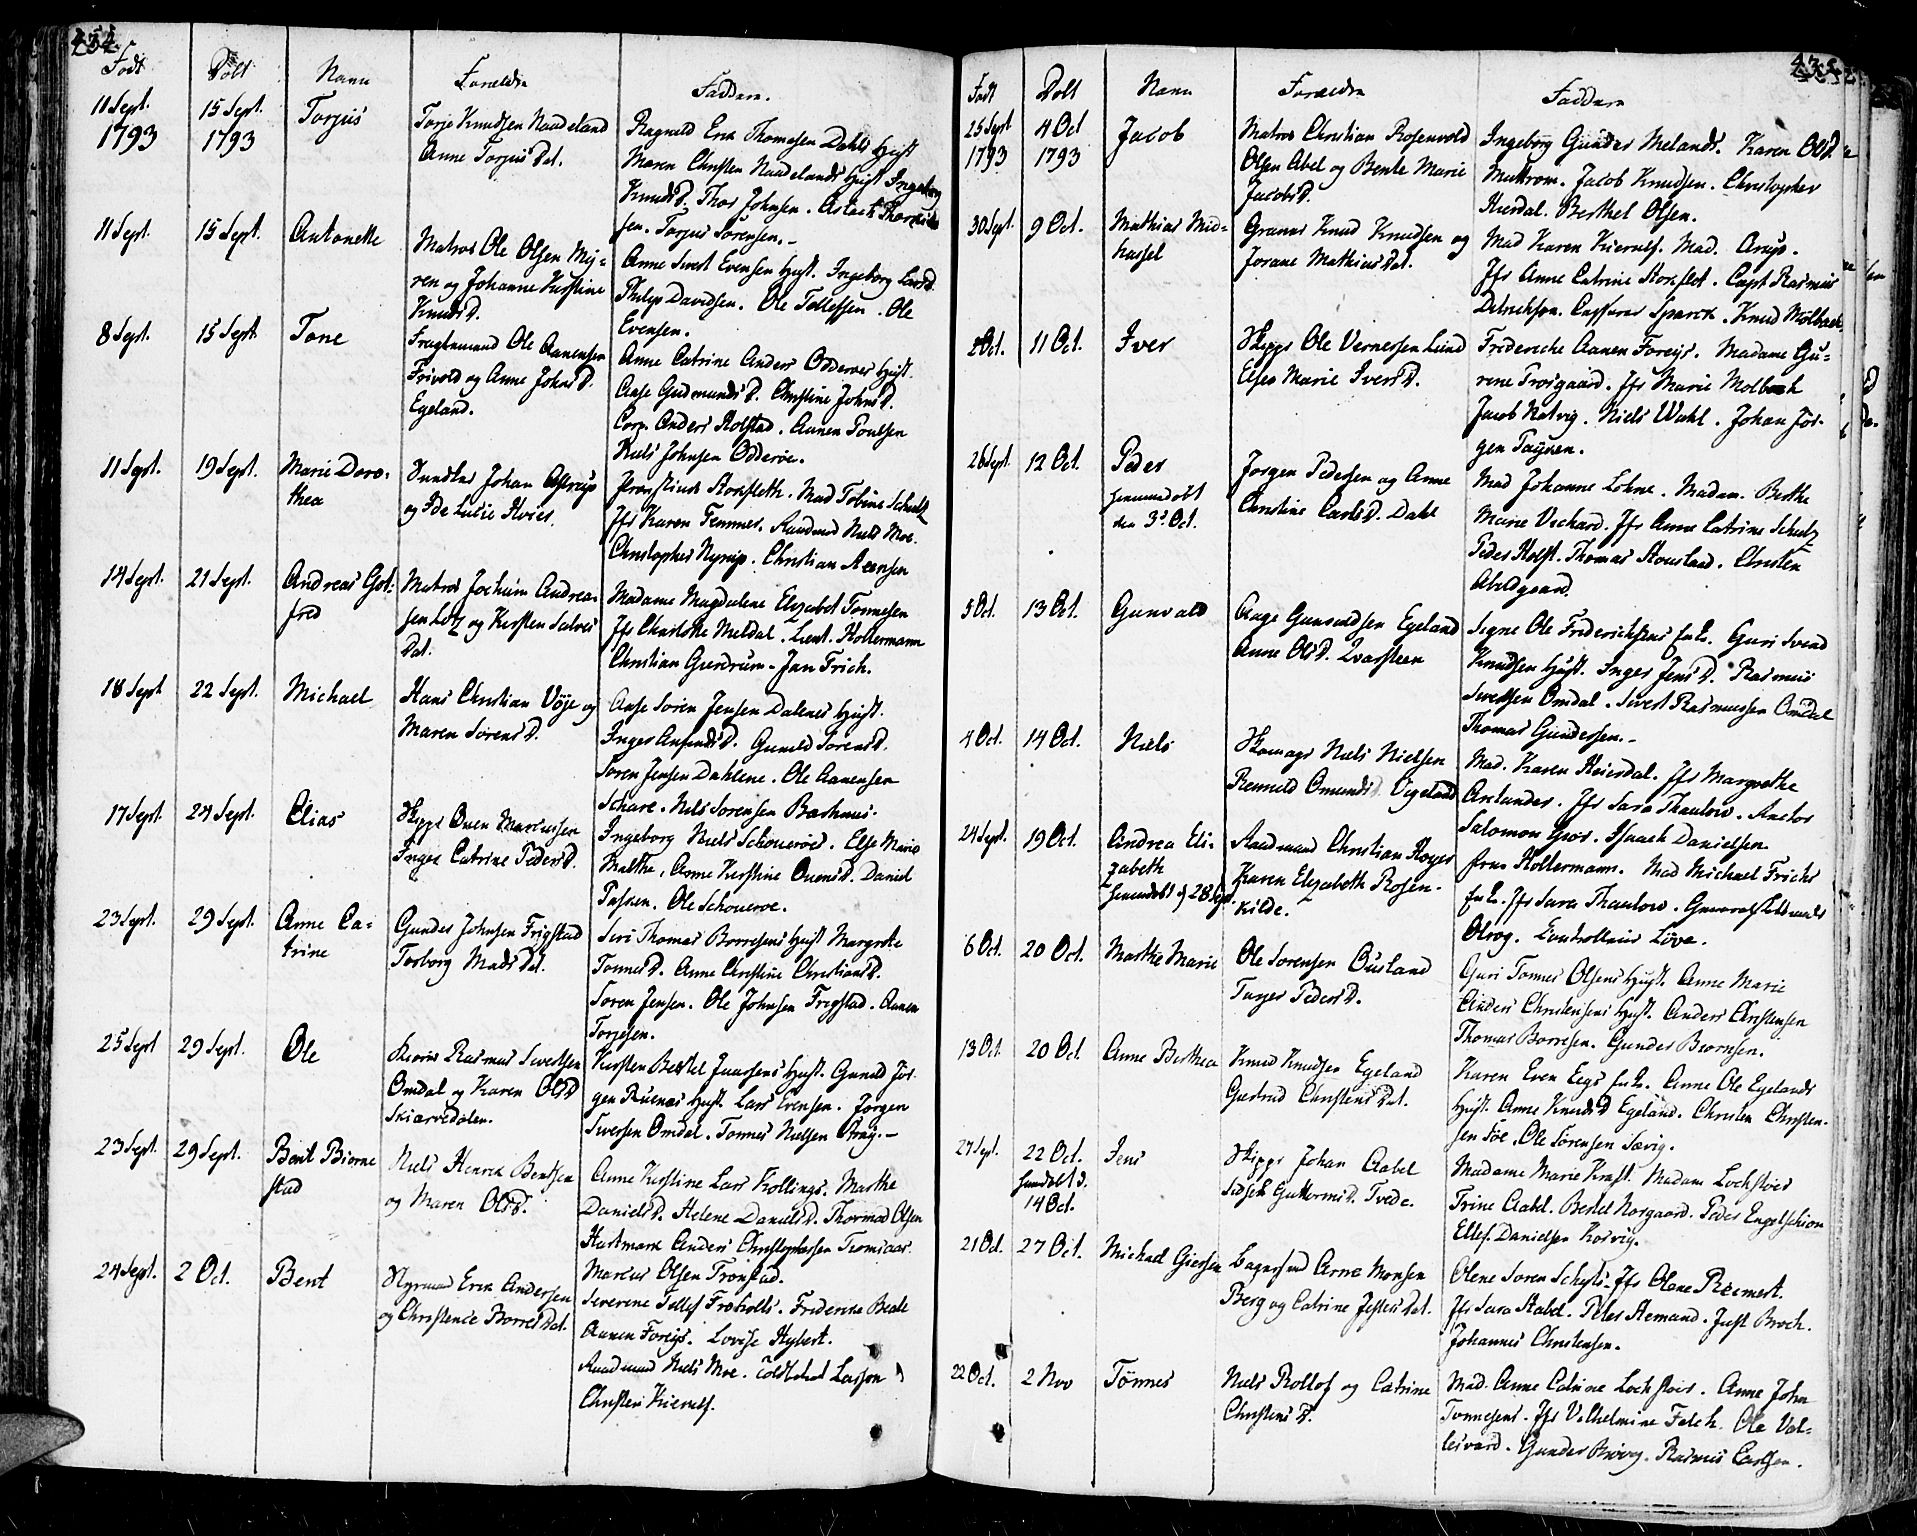 434
Født
Døbt
Navn
Forældre
Faddere.
11 Sept.
1793
15 Sept.
1793
Torjus
Torje Knudsen Naadeland
Anne Torjus Dat.
Ragnald Erik Thomesen Dahls Hust
Maren Christen Naadelands Hust Ingeborg
Knuds D. Thor Johnsen. Aslack
sen. Torjus Sørensen.
11 Sept.
15 Sept.
Antonette
Matros Ole Olsen Mey-
ren og Johanne Kirstine
Knuds D.
Anne Sivert Evensen Hust. Ingeborg Lars D.
Philip Davidsen. Ole Tellefsen. Ole
Evensen.
8 Sept.
15 Sept.
Tone
Ole Aanensen
Frivold og Anne Johns D.
Egeland.
Anne Catrine Anders Odderøes Hust.
Aase Gudmunds D. Christine Johns D.
Corp. Anders Rolstad. Aanen Poulsen
Niels Johnsen Odderøe.
11 Sept.
19 Sept.
Marie Doro-
thea
Johan Astrup
og Ide Lucie
Stoxfleth. Mad Tobine Schultz
Jfr Karen Temmer. Raadmd Niels Moe.
Christopher Nyrup. Christian
14 Sept.
21 Sept.
Andreas Got-
fred
Matros Jochum Andrea-
sen Lotz og Kirsten Salves
Dat.
Madame Magdalene Elizabet Tønnesen
Jfr Charlotte Meldal. Lieut. Holtermann
Christian Gundrum. Jan Frich.
18 Sept
22 Sept.
Michael
Hans Christian Vøje og
Maren Sørens D.
Aase Søren Jensen Dalenes Hust.
Inger Amunds D. Gunild Sørens D.
Søren Jensen Dahlene. Ole Aanensen
Schare. Niels Sørensen
17 Sept.
24 Sept.
Elias
Skipp. Ouen Marcussen
Inger Catrine Peders D.
Ingeborg Niels Schouerøes. Else Marie
Malthe. Anne Kirstine Ouens D. Daniel
Ole Schouerøe.
23 Sept.
29 Sept.
Anne Ca-
trine
Gunder Johnsen Frigstad
Torborg Mads Dat.
Siri Thomas Borresens Hust Margrete
Tønnes D. Anne Christine Christians D.
Søren Jensen. Ole Johnsen Frigstad. Aanen
Torjesen.
25 Sept
29 Sept.
Ole
Rasmus Sivertsen
Omdal og Karen Ols D
Skiærvedalen.
Kirsten Bertel Jaarsens Hust. Gunild Jør-
gen Hust. Lars Evensen. Jørgen
Siversen Omdal. Tønnes Nielsen
23 Sept.
29 Sept.
Bent Biørne
stad
Niels Henrik Bentsen
og Maren Ols D.
Anne Kirstine Lars Kollings. Marthe
Daniels D. Helene Daniels D. Thormod Olsen
Hartmark Anders Christophersen
Marcus Olsen Trønstad.
24 Sept.
2 Oct.
Bent
Erik Andersen
og Christence Borres Dat.
Severine Tellef Fraholts. Frideriche Beate
Aanen Foreys. Lovise Hybert.
Raadmand Niels Moe. Toldbetient Lasson
Christen Kierulf.
Født
Døbt
Navn
Forældre
Faddere
25 Sept
1793
4 Oct
1793
Jacob
Matros Christian Rosenvold
Olsen Abel og Bente Marie
Jacobs D.
Ingeborg Gunder Melands. Karen Ols D.
Jacob Knudsen. Christopher
Berthel Olsen.
30 Sept.
9 Oct.
Mathias Mid-
hassel
Knud Knudsen og
Jorane Mathias Dat.
Mad Karen Kierulf. Mad. Arup.
Jfr Anne Catrine Stoxflet. Capt Rasmus
Detrichson. Casserer Sparck. Knud Mølbach.
2 Oct.
11 Oct.
Iver
Skipp Ole Vernersen Lund
Elses Marie Ivers D.
Frederiche Aanen Foreys. Madame Gu-
rene Trosgaard. Jfr Marie Molbach
Jacob Natvig. Niels Wahl. Johan Jør-
gen
26 Sept.
12 Oct.
Peder
hjemmedøbt
den 3d Oct.
Jørgen Pedersen og Anne
Christine Carls D. Dahl
Mad Johanne Lohne. Madam. Berthe
Marie Vichard. Jfr Anne Catrine Schultz
Peder Holst. Thomas Stousland. Christen
Abilgaard.
5 Oct.
13 Oct.
Gunvald
Aage Gunvaldsen Egeland
Anne Ols D. Qvarsteen
Signe Ole Friderichsens Enke. Guri Svend
Knudsen Hust. Inger Jens D. Rasmus
Sivertsen Omdal. Sivert Rasmussen Omdal
Thomas Gundersen.
4 Oct.
14 Oct.
Niels
Skomagr Niels Nielsen
Omunds D. Vigeland
Mad. Karen Reiersdal. Jfr Margrethe
Jfr Sara Thaulow.
Salomon Isaach Danielsen.
24 Sept.
19 Oct.
Andrea Eli-
zabeth
Raadmand Christian
Karen Elizabeth Rosen-
kilde.
Frue Holtermann. Mad Michael Frichs
Enke. Jfr Sara Thaulow.
Olrog. Controlleur Løve.
6 Oct.
20 Oct.
Marthe Marie
Ole Sørensen Øusland
Peders D.
Guri Tønnes Olsens Hust. Anne Marie
Anders Christensens Hust. Anders Christensen
Thomas Borresen. Gunder Biørnsen.
13 Oct.
20 Oct.
Anne Berthea
Knud Knudsen Egeland
Gudrud Christens Dat.
Karen Even Eegs Enke. Anne Ole Egelands
Hust. Anne Knuds D Egeland. Christen Christen-
sen Søe. Ole Sørensen Sævig.
27 Sept.
22 Oct.
hjemdøbt d.
14 Oct.
Jens
Skipp. Johan Aabel
Guttorms D. Tvede.
Madame Marie Kraft. Madam Lochstøer
Trine Aabel. Bertel Norgaard. Peder Engelschion
Ellef Danielsen Kosvig.
21 Oct.
27 Oct.
Michael Giersen
Arne Monsen
Berg og Catrine Jesses Dat.
Olene Søren Schyts. Jfr Olene Reimert.
Jfr Sara Stabel. Peder Just Broch.
Johannes Christensen.
22 Oct.
2 Nov
Tønnes
Niels Rollof og Catrine
Christens D.
Mad. Anne Catrine Lochstøer. Anne John
Tønnesens. Jfr Vilhelmine Falch. Ole Val-
lesværd. Gunder Rasmus Carlsen.